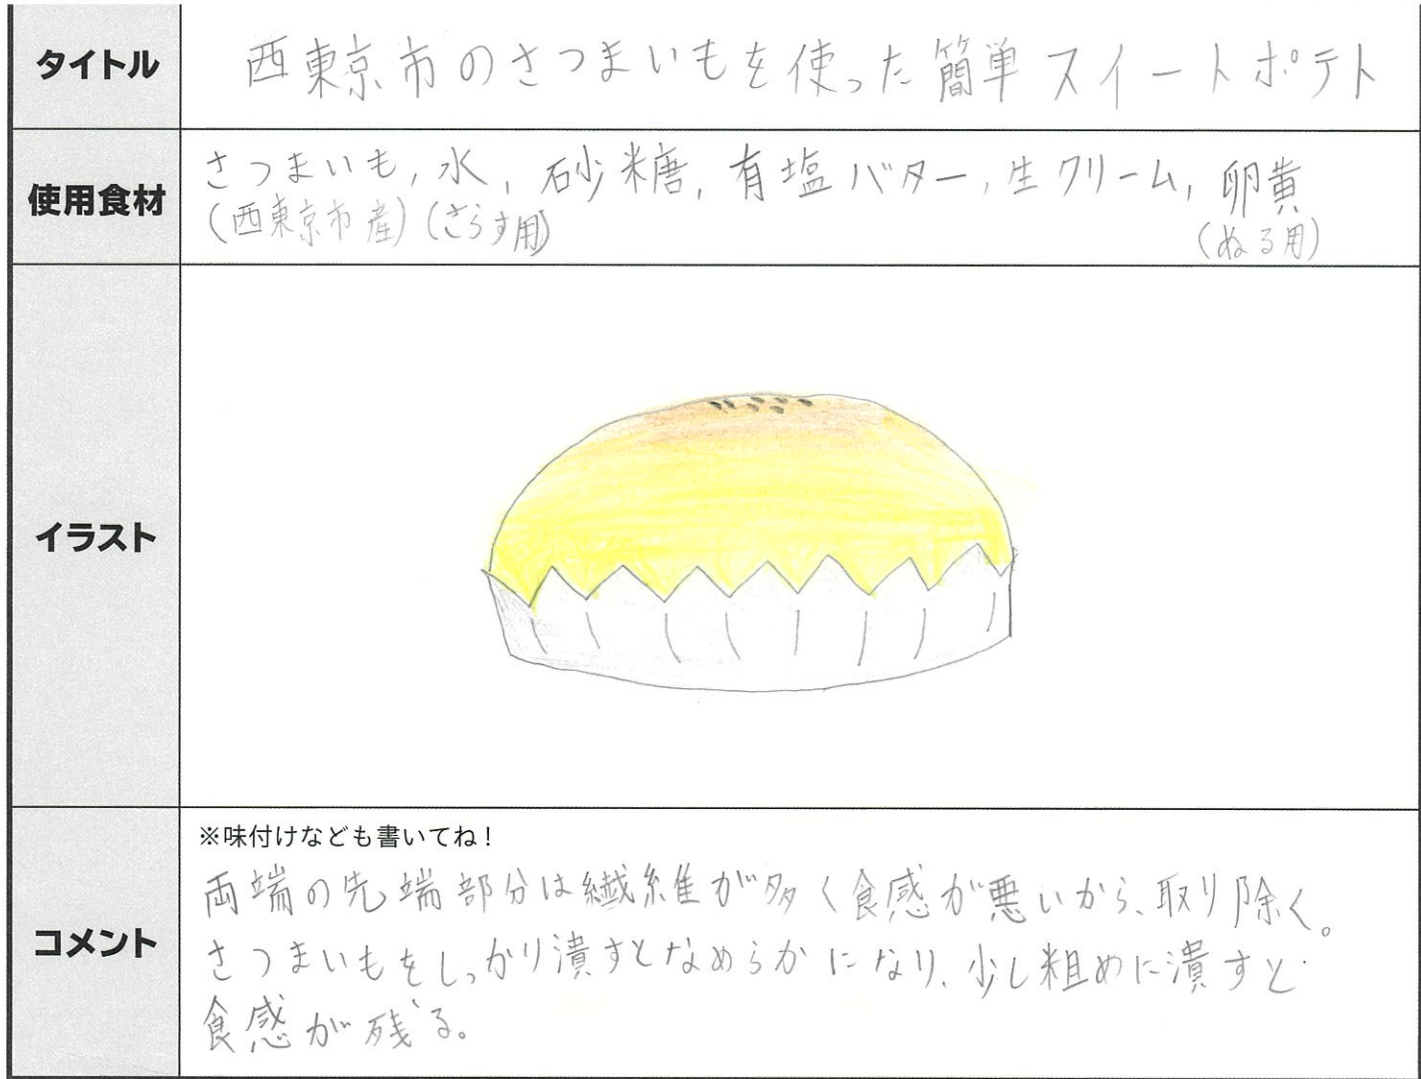 タイトル
西東京市のさつまいもを使った簡単スイートポテト
使用食材
さつまいも,水,砂糖,有塩バター,生クリーム,卵黄
(西東京市産)(さらす用)
(ぬる用)
イラスト
コメント
※味付けなども書いてね!
両端の先端部分は繊維が多く食感が悪いから、取り除く。
さつまいもをしっかり潰すとなめらかになり、少し粗めに潰すと
食感が残る。